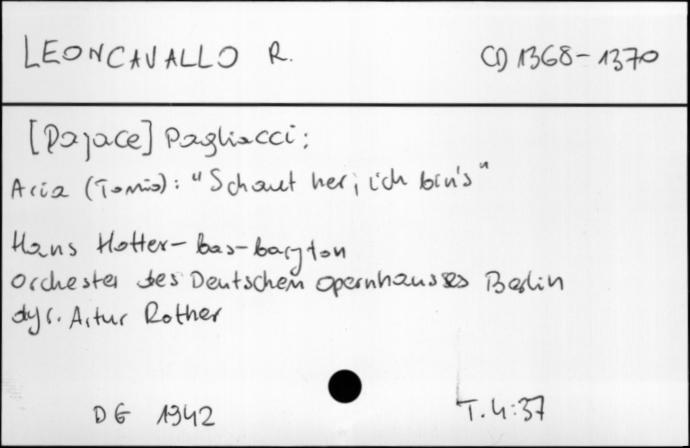 LEONCAVALLO R. CD 1368-1370
[Pajace] Pagliacci;
Aria (Tonio): "Schaut her, ich bin's"
Hans Hotter - bas-baryton
Orchester des Deutschen Opernhauses Berlin
dyr. Artur Rother
DG 1942 T. 4:37